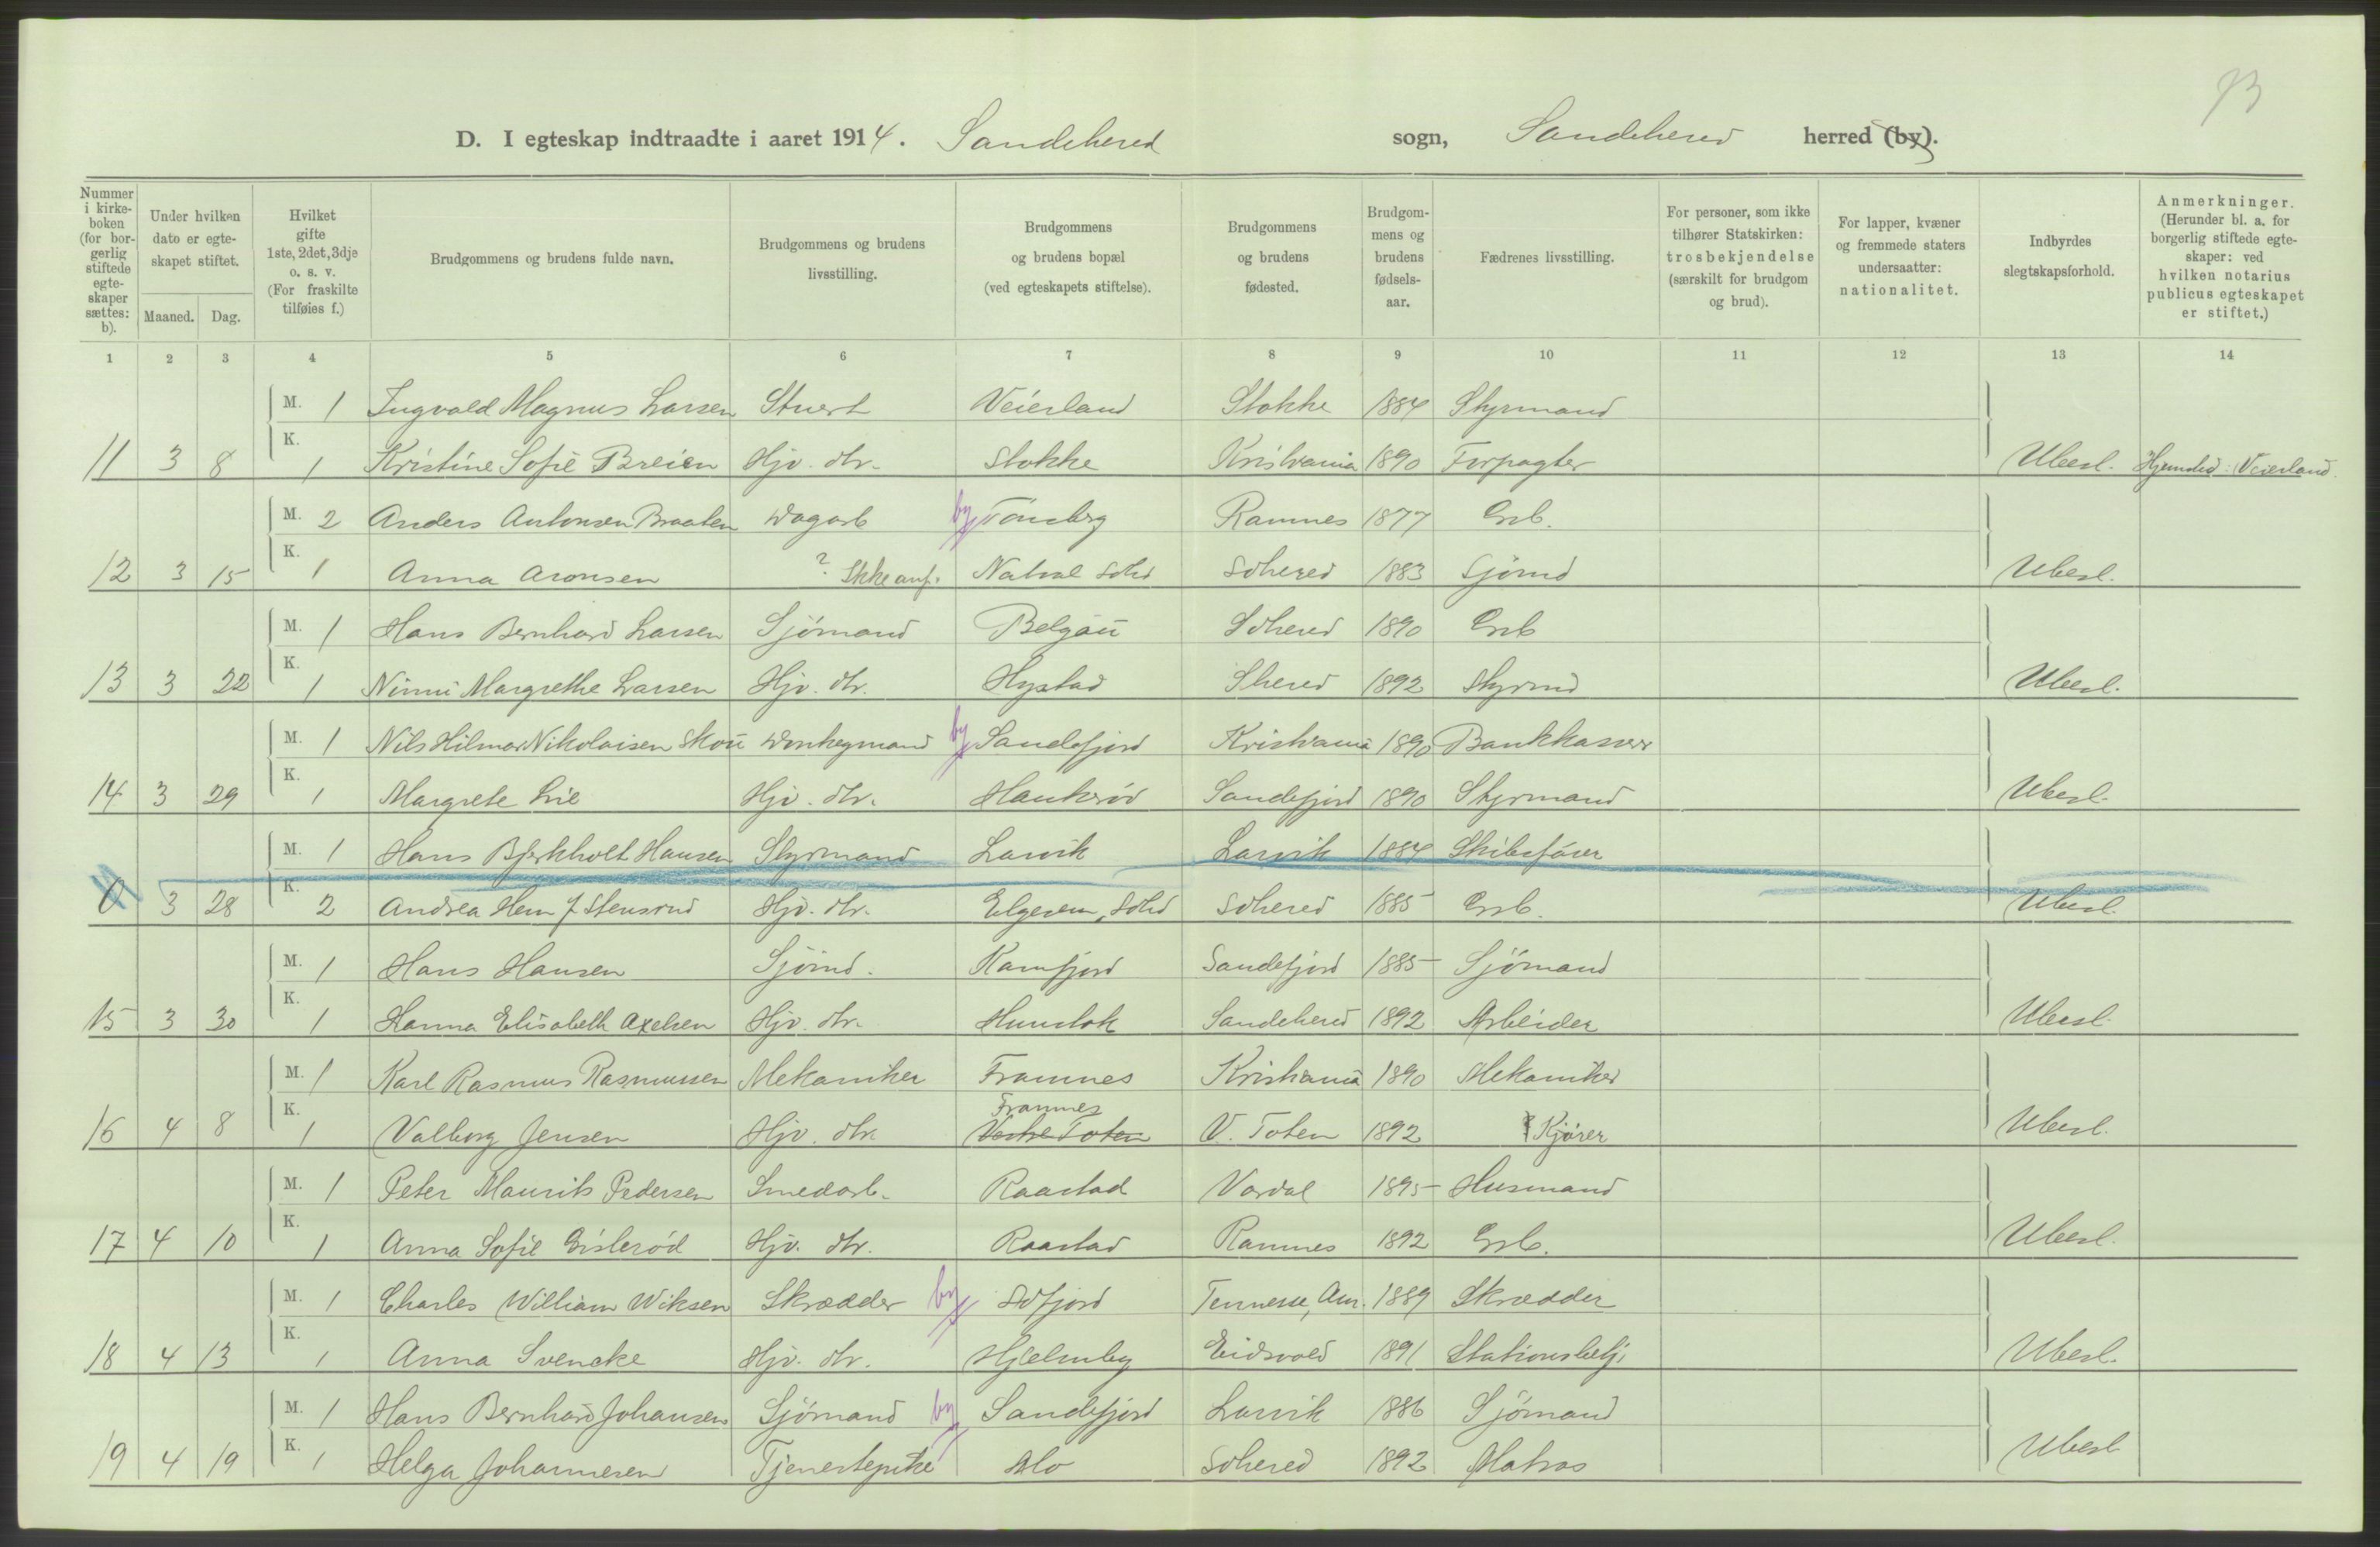 D. I egteskap indtraadte i aaret 1914. Sandehered sogn, Sandehered herred (by).
Nummer i kirkeboken (for borgerlig stiftede egteskaper sættes: b).
Under hvilken dato er egteskapet stiftet.
Maaned. Dag.
Hvilket gifte 1ste, 2det, 3dje o. s. v. (For fraskilte tilføies f.)
Brudgommens og brudens fulde navn.
Brudgommens og brudens livsstilling.
Brudgommens og brudens bopæl (ved egteskapets stiftelse).
Brudgommens og brudens fødested.
Brudgommens og brudens fødselsaar.
Fædrenes livsstilling.
For personer, som ikke tilhører Statskirken: trosbekjendelse (særskilt for brudgom og brud).
For lapper, kvæner og fremmede staters undersaatter: nationalitet.
Indbyrdes slegtskapsforhold.
Anmerkninger. (Herunder bl. a. for borgerlig stiftede egteskaper: ved hvilken notarius publicus egteskapet er stiftet.)
1 2 3 4 5 6 7 8 9 10 11 12 13 14
M. 1 Ingvald Magnus Larsen Stuert Veierland Stokke 1884 Styrmand
11 3 8 K. 1 Kristine Sofie Breien Hjv. dtr. Stokke Kristiania 1890 Forpagter Ubesl. Veierland
M. 2 Anders Antonsen Braaten Dagarb by Tönsberg Ramnes 1877 Grb.
12 3 15 K. 1 Anna Aronsen ? Ikke anf. Natval Sdhd Sdhered 1883 Sjömd Ubesl.
M. 1 Hans Bernhard Larsen Sjömand Belgau Sdhered 1890 Grb
13 3 22 K. 1 Ninni Margrethe Larsen Hjv. dtr. Hystad Shered 1892 Styrmd Ubesl.
M. 1 Nils Hilmar Nikolaisen Skou Donkeymand by Sandefjord Kristiania 1890 Bankkasser
14 3 29 K. 1 Margrete Lie Hjv. dtr. Haukeröd Sandefjord 1890 Styrmand Ubesl.
M. 1 Hans Bjerkholt Hansen Styrmand Larvik Larvik 1884 Skibsfører
0 3 28 K. 2 Andrea Hem f Stensrud Hjv. dtr. Elgesem, Sdhd Sdhered 1885 Grb. Ubesl.
M. 1 Hans Hansen Sjömd. Kamfjord Sandefjord 1885 Sjömand
15 3 30 K. 1 Hanna Elisabeth Axelsen Hjv. dtr. Hunstok Sandehered 1892 Arbeider Ubesl.
M. 1 Karl Rasmus Rasmussen Mekaniker Framnes Kristiania 1890 Mekaniker
Framnes
16 4 8 K. 1 Valborg Jensen Hjv. dtr. Vestre Toten V. Toten 1892 Kjører Ubesl.
M. 1 Peter Maurits Pedersen Smedarb. Raastad Vardal 1895 Husmand
17 4 10 K. 1 Anna Sofie Gislerød Hjv. dtr. Raastad Ramnes 1892 Grb. Ubesl.
M. 1 Charles William Wiksen Skrædder by Sdfjord Tennesse, Am. 1889 Skrædder
18 4 13 K. 1 Anna Svencke Hjv. dtr. Hjelmby Eidsvold 1891 Stationsbetj. Ubesl.
M. 1 Hans Bernhard Johansen Sjömand by Sandefjord Larvik 1886 Sjömand
19 4 19 K. 1 Helga Johannesen Tjenestepike Mo Sdhered 1892 Matros Ubesl